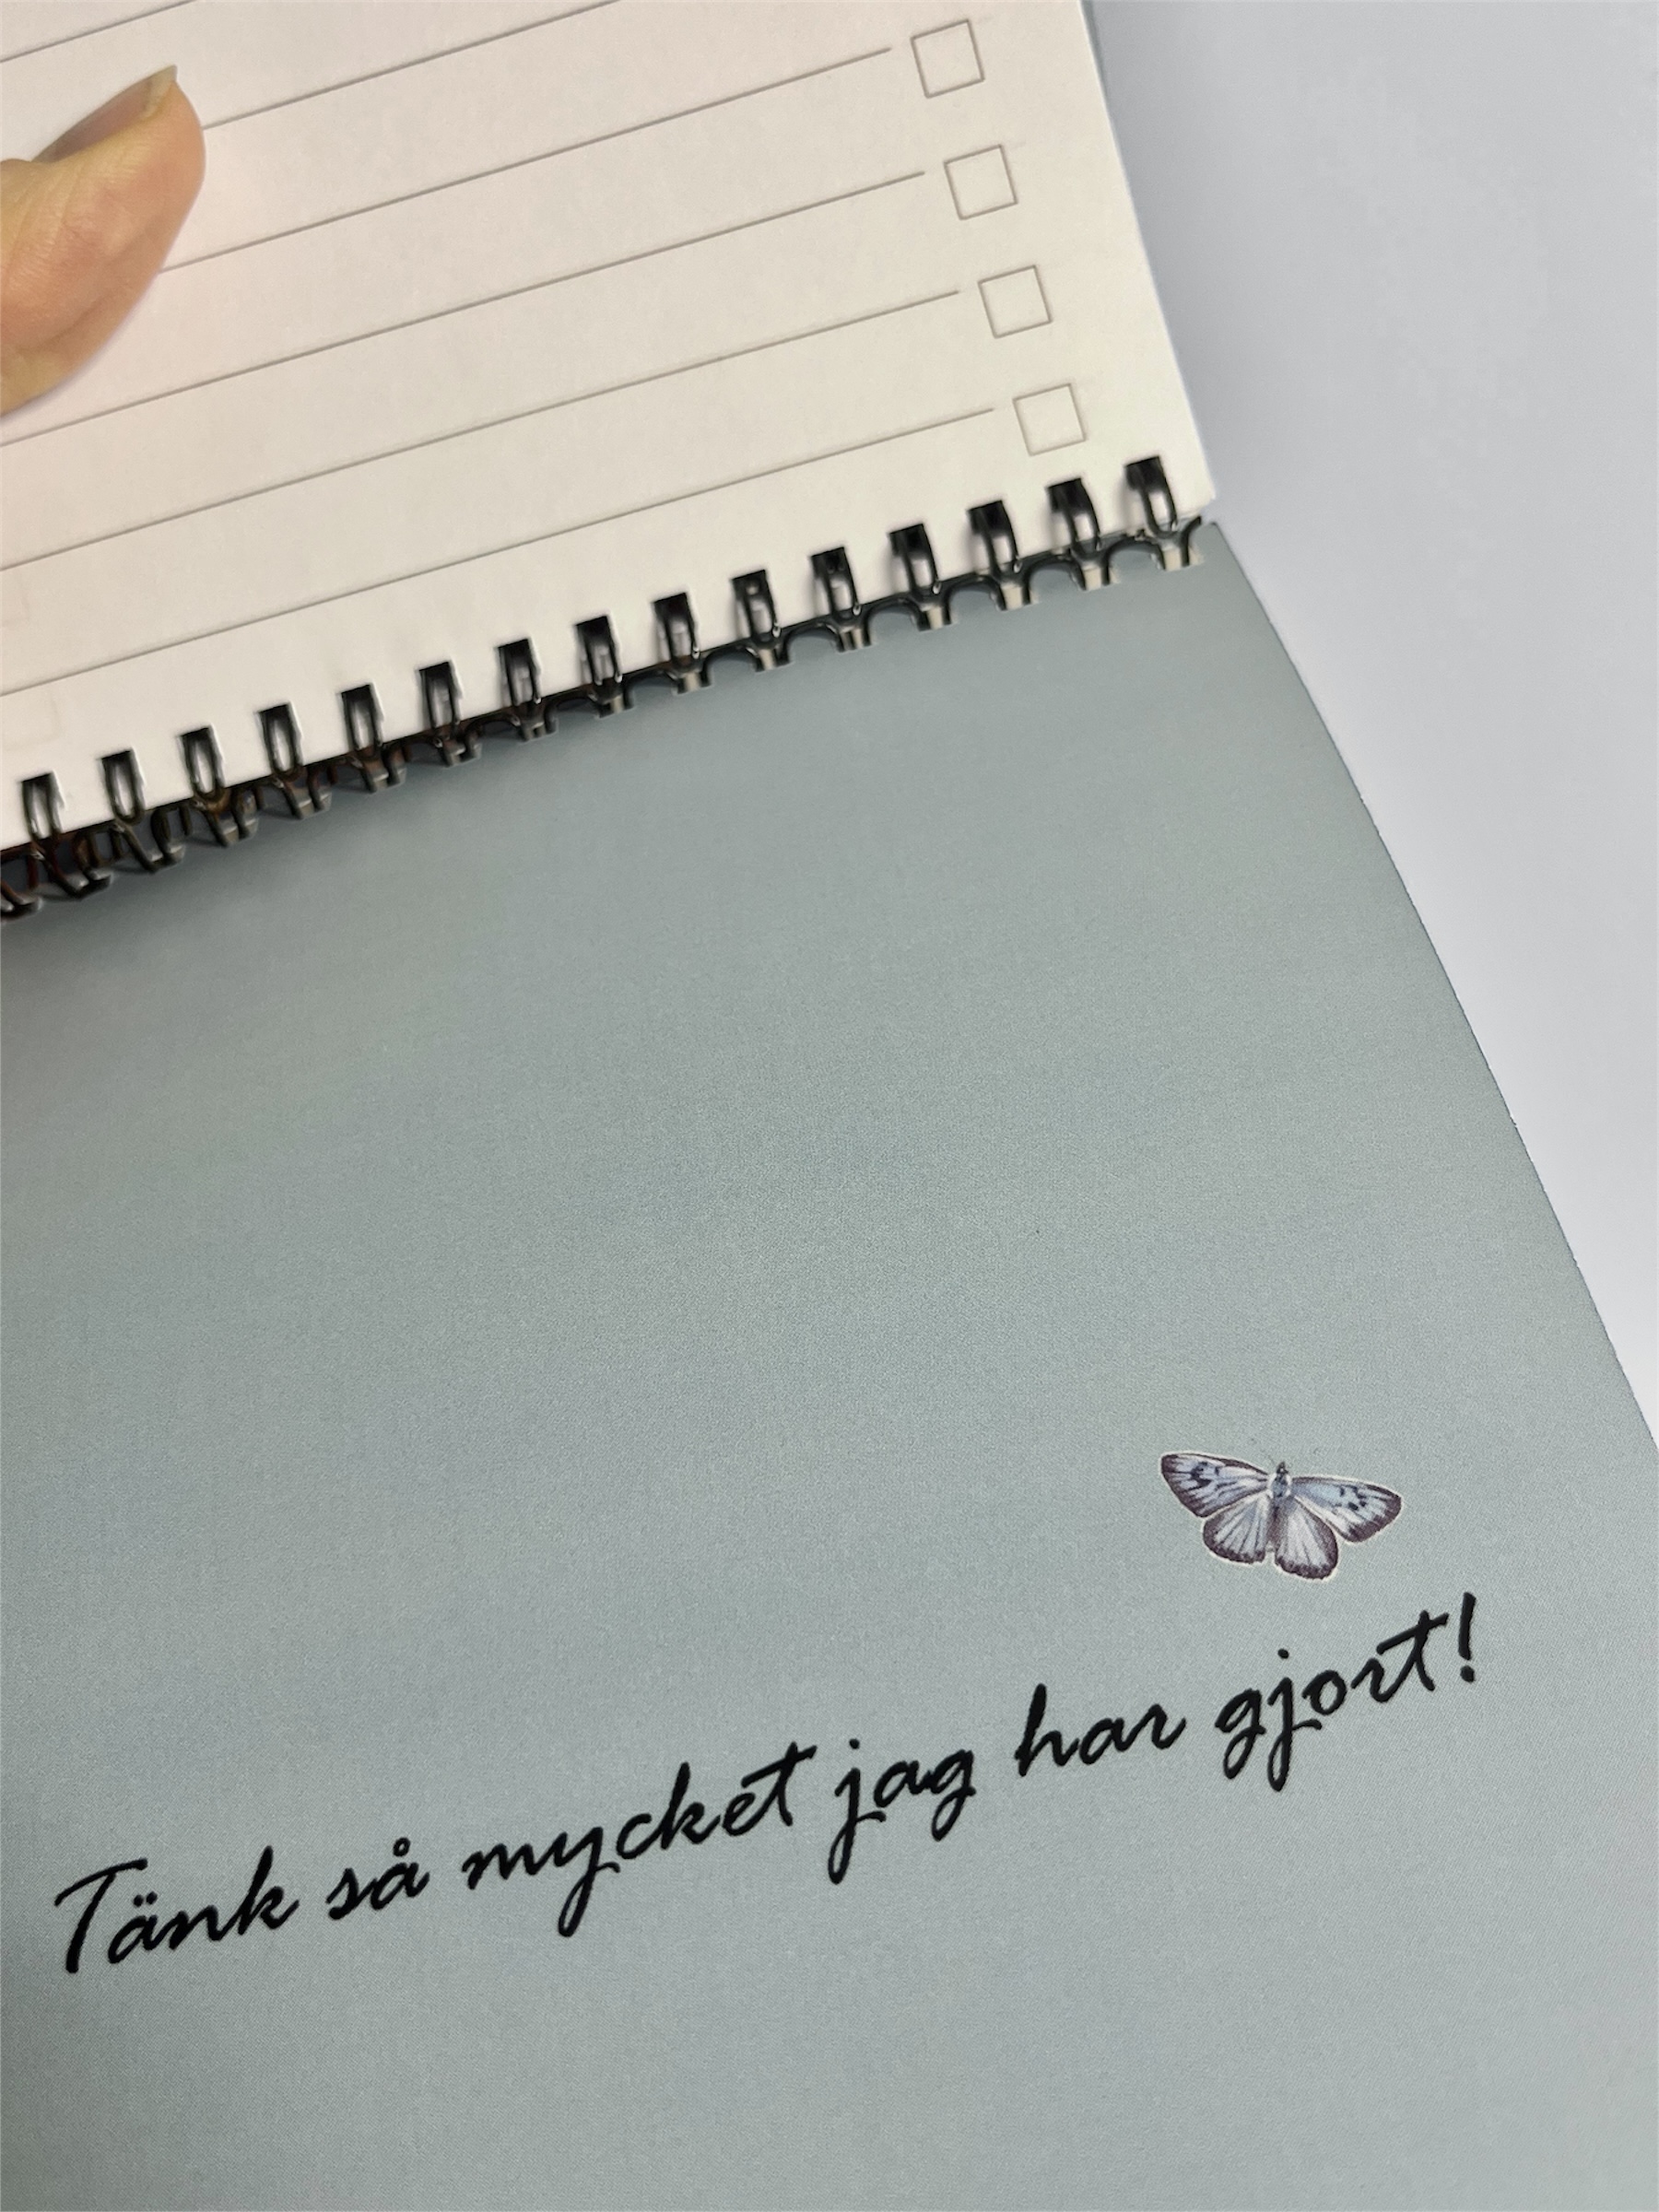 Tänk så mycket jag har gjort!